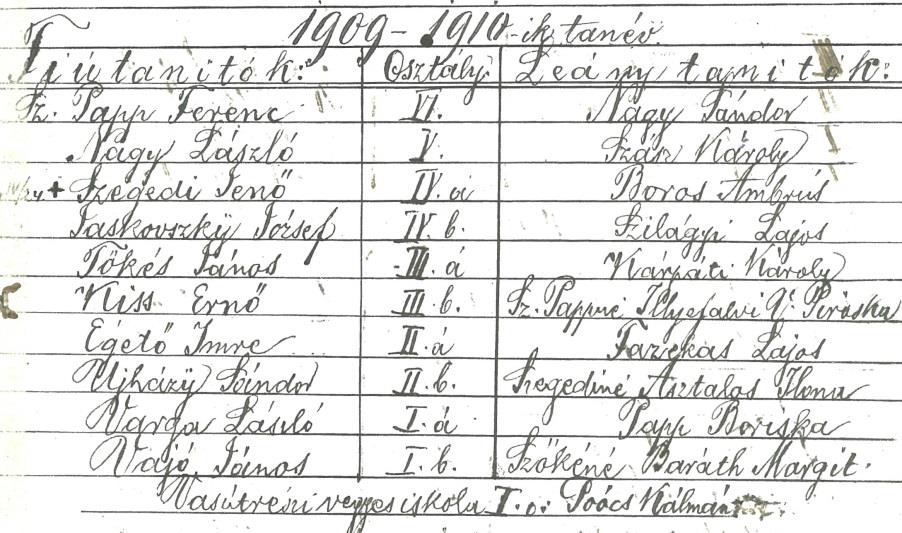 1909-1910-ik tanév.
Fiútanitók: Osztály: Leány tanitók:
Sz. Papp Ferenc VI. Nagy Sándor
Nagy László V. Szász Károly
+ Szegedi Jenő IV. á Boros Ambrús
Jaskovszkÿ József IV. b. Szilágyi Lajos
Tőkés János III. á Kárpáti Károly
Kiss Ernő III. b. Sz. Pappné Illyefalvi V. Piroska
Égető Imre II. á Fazekas Lajos
Ujházÿ Sándor II. b. Szegediné Asztalos Ilona
Varga László I. á Papp Boriska
Vajó János I. b. Szőkéné Baráth Margit.
Vasútrészi vegyes iskola I. o. Soócs Kálmán